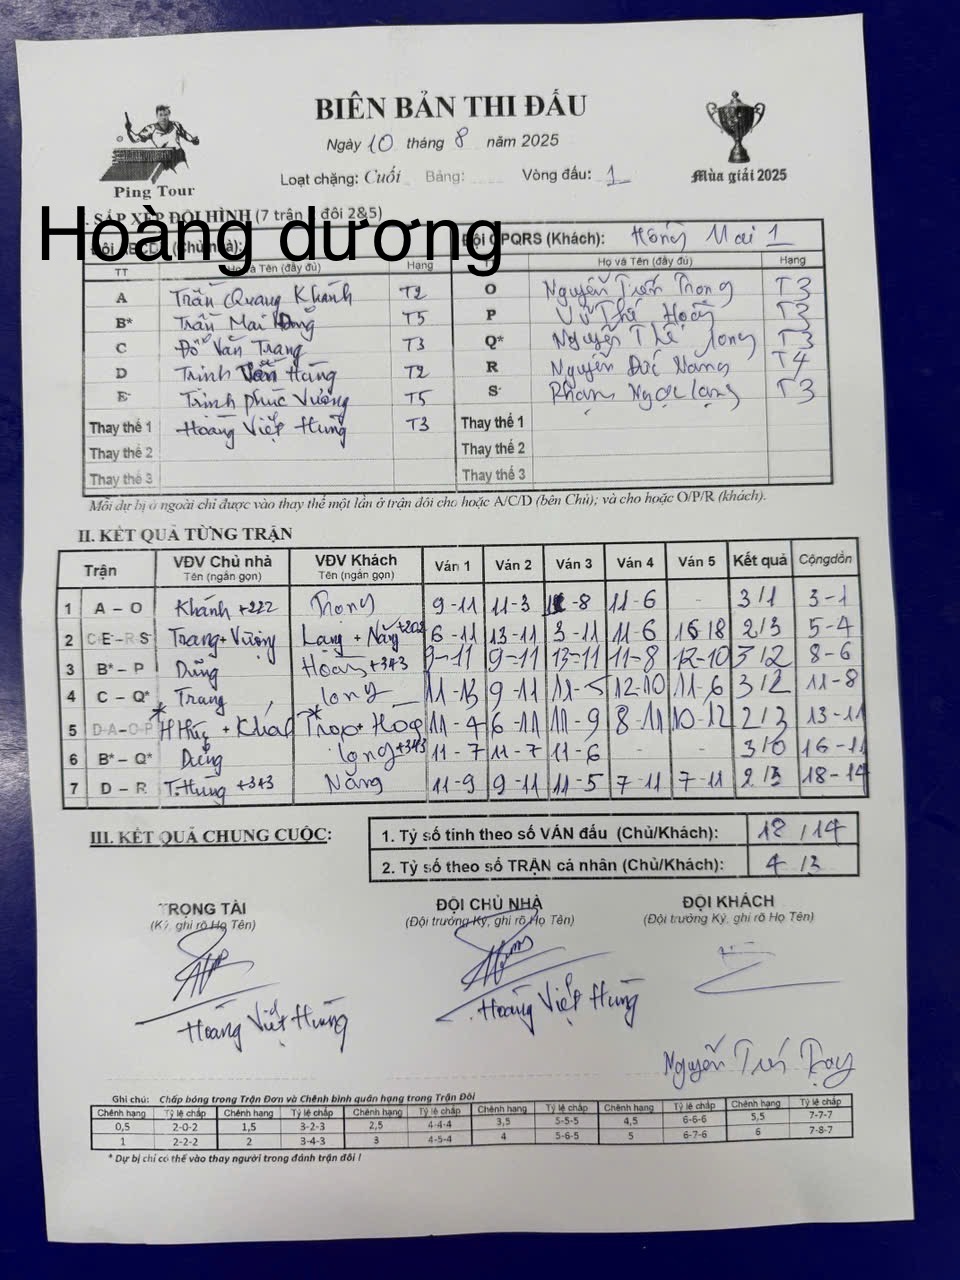 BIÊN BẢN THI ĐẤU
Ngày 10 tháng 8 năm 2025
Ping Tour
Loại chặng: Cuối Bảng: Vòng đấu: 1
Mùa giải 2025
Hoàng dương
SẮP XẾP ĐỘI HÌNH (7 trận đôi 2&5)
OPQRS (Khách): Hồng Mai 1
TT Họ và Tên (đầy đủ) Hạng Họ và Tên (đầy đủ) Hạng
A Trần Quang Khánh T2 O Nguyễn Tiến Trọng T3
B* Trần Mai T5 P Vũ Thế Hoàng T3
C Đỗ Văn Trang T3 Q* Nguyễn Thế Long T3
D Trịnh Văn Hùng T2 R Nguyễn Đức Năng T4
E Trịnh Phúc Vượng T5 S Phạm Ngọc Lang T3
Thay thế 1 Hoàng Việt Hùng T3 Thay thế 1
Thay thế 2 Thay thế 2
Thay thế 3 Thay thế 3
Mỗi dự bị ở ngoài chỉ được vào thay thế một lần ở trận đôi cho hoặc A/C/D (bên Chủ); và cho hoặc O/P/R (khách).
II. KẾT QUẢ TỪNG TRẬN
Trận VĐV Chủ nhà VĐV Khách Ván 1 Ván 2 Ván 3 Ván 4 Ván 5 Kết quả Cộng dồn
Tên (ngắn gọn) Tên (ngắn gọn)
1 A – O Khánh +222 Trọng 9-11 11-3 -8 11-6 - 3/1 3-1
2 C-E – R-S Trang + Vượng Lang + Năng +202 6-11 13-11 3-11 11-6 16-18 2/3 5-4
3 B* – P Dũng Hoàng +343 9-11 9-11 13-11 11-8 12-10 3/2 8-6
4 C – Q* Trang long 11-13 9-11 11-5 12-10 11-6 3/2 11-8
5 D-A – O-P * + * 11-4 6-11 11-9 8-11 10-12 2/3 13-11
6 B* – Q* Dũng long +343 11-7 11-7 11-6 - - 3/0 16-11
7 D – R T.Hùng +343 Năng 11-9 9-11 11-5 7-11 7-11 2/3 18-14
III. KẾT QUẢ CHUNG CUỘC:
1. Tỷ số tính theo số VÁN đấu (Chủ/Khách): 18/14
2. Tỷ số theo số TRẬN cá nhân (Chủ/Khách): 4/3
TRỌNG TÀI ĐỘI CHỦ NHÀ ĐỘI KHÁCH
(Ký, ghi rõ Họ Tên) (Đội trưởng Ký, ghi rõ Họ Tên) (Đội trưởng Ký, ghi rõ Họ Tên)
Hoàng Việt Hùng Hoàng Việt Hùng
Nguyễn Tiến Trọng
Ghi chú: Chấp bóng trong Trận Đơn và Chênh bình quân hạng trong Trận Đôi
Chênh hạng Tỷ lệ chấp Chênh hạng Tỷ lệ chấp Chênh hạng Tỷ lệ chấp Chênh hạng Tỷ lệ chấp Chênh hạng Tỷ lệ chấp Chênh hạng Tỷ lệ chấp
0,5 2-0-2 1,5 3-2-3 2,5 4-4-4 3,5 5-5-5 4,5 6-6-6 5,5 7-7-7
1 2-2-2 2 3-4-3 3 4-5-4 4 5-6-5 5 6-7-6 6 7-8-7
* Dự bị chỉ có thể vào thay người trong đánh trận đôi !